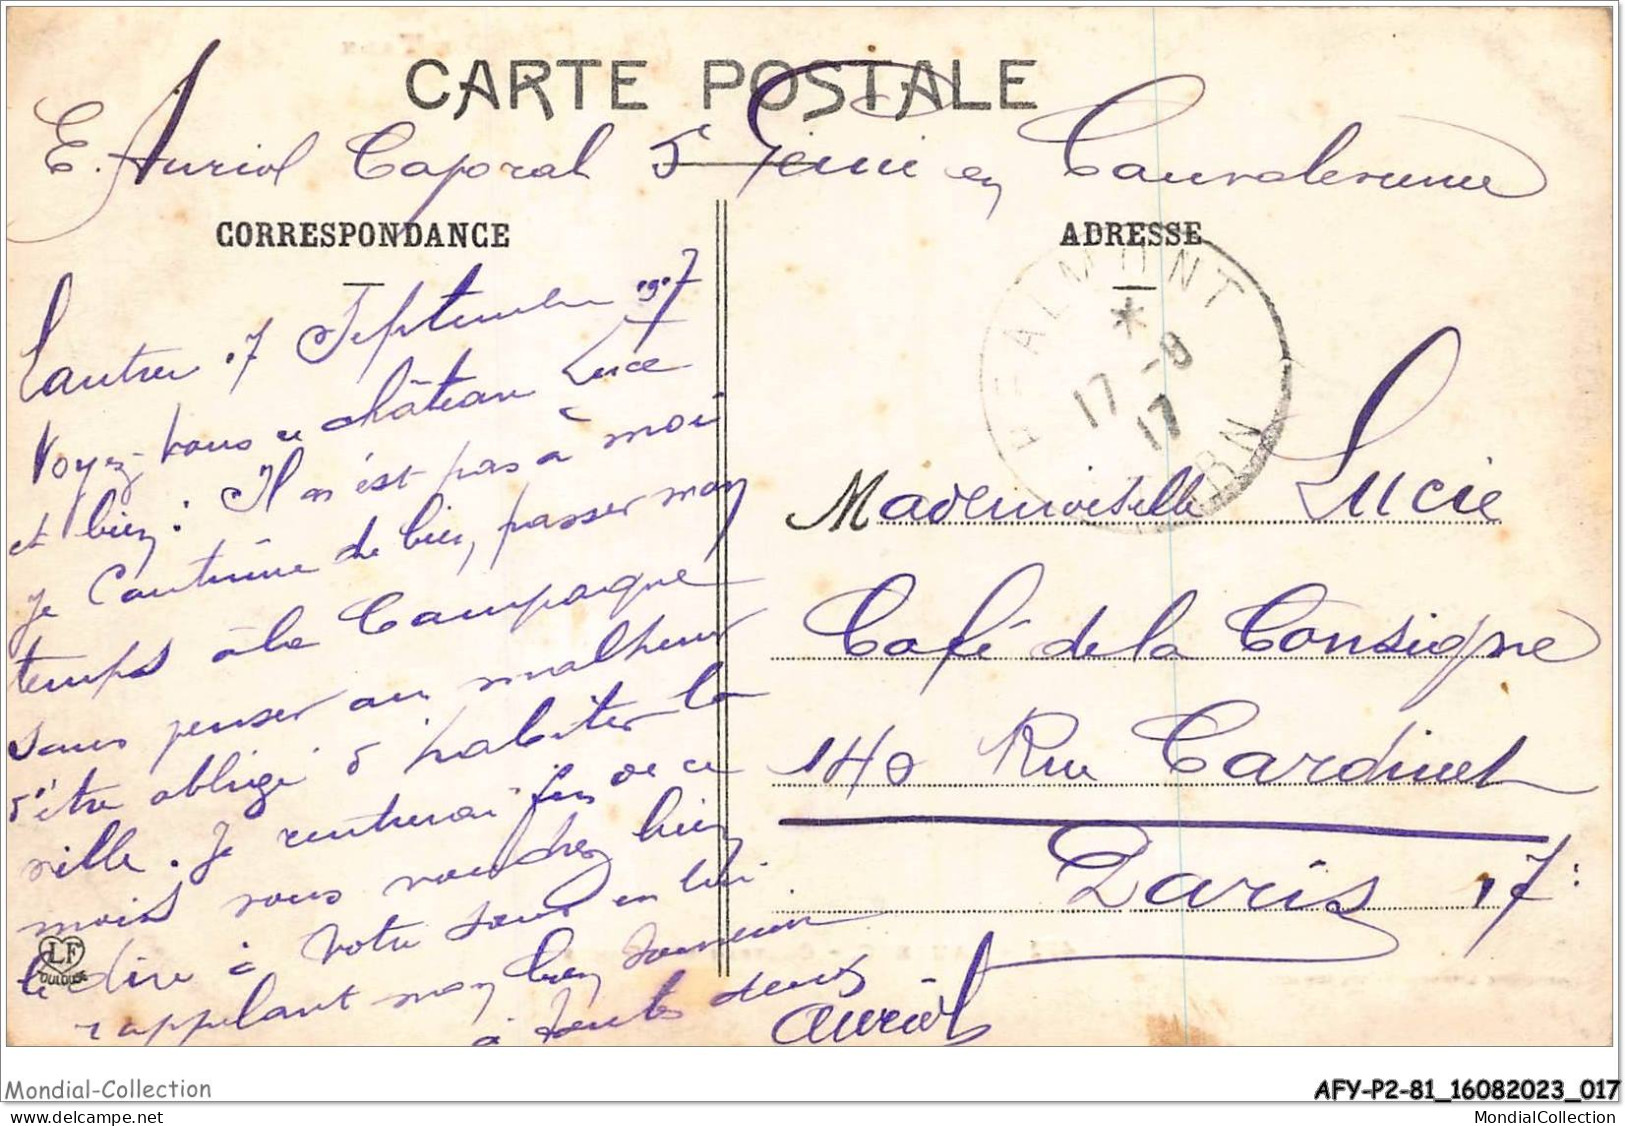 CARTE POSTALE
E. Auriol Caporal 5e Génie en
CORRESPONDANCE
ADRESSE
Lautrec 7 Septembre 1917
Voyez-vous ce château Luce
et bien: Il n'est pas à moi
je l'
de bien, passer mon
temps à la Campagne
sans penser au malheur
d'être obligé d'habiter la
ville. Je rentrerai fin de ce
mois vous voudrez bien
le dire à votre sœur en lui
rappelant mon bon souvenir
à toutes deux
Auriol
LF
TOULOUSE
REALMONT
*
17-9
17
TARN
Mademoiselle Lucie
Café de la Consigne
140 Rue Cardinet
Paris 17e
Mondial-Collection
AFY-P2-81_16082023_017
www.delcampe.net
MondialCollection